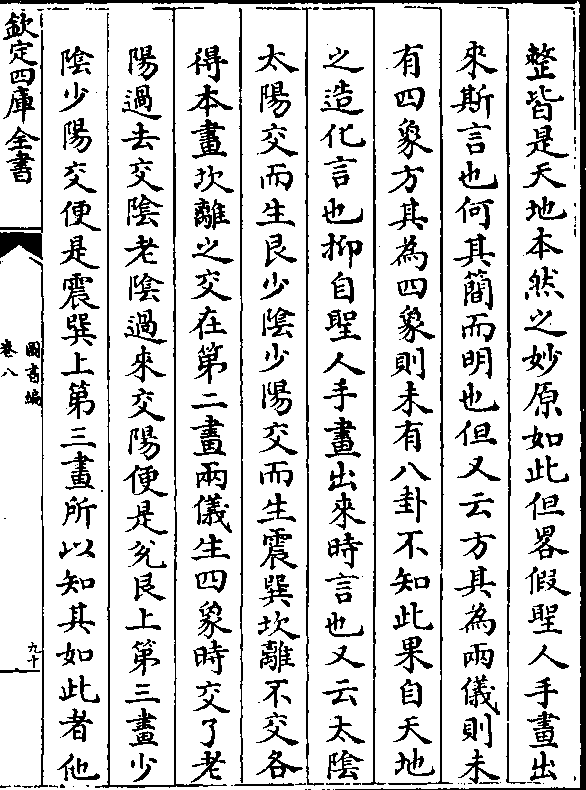 整皆是天地本然之妙原如此但畧假聖人手畫出
來斯言也何其簡而明也但又云方其為兩儀則未
有四象方其為四象則未有八卦不知此果自天地
之造化言也抑自聖人手畫出來時言也又云太陰
太陽交而生艮少陰少陽交而生震巽坎離不交各
得本畫坎離之交在第二畫兩儀生四象時交了老
陽過去交陰老陰過來交陽便是兊艮上第三畫少
陰少陽交便是震巽上第三畫所以知其如此者他
欽定四庫全書
圖書編
卷八
九十